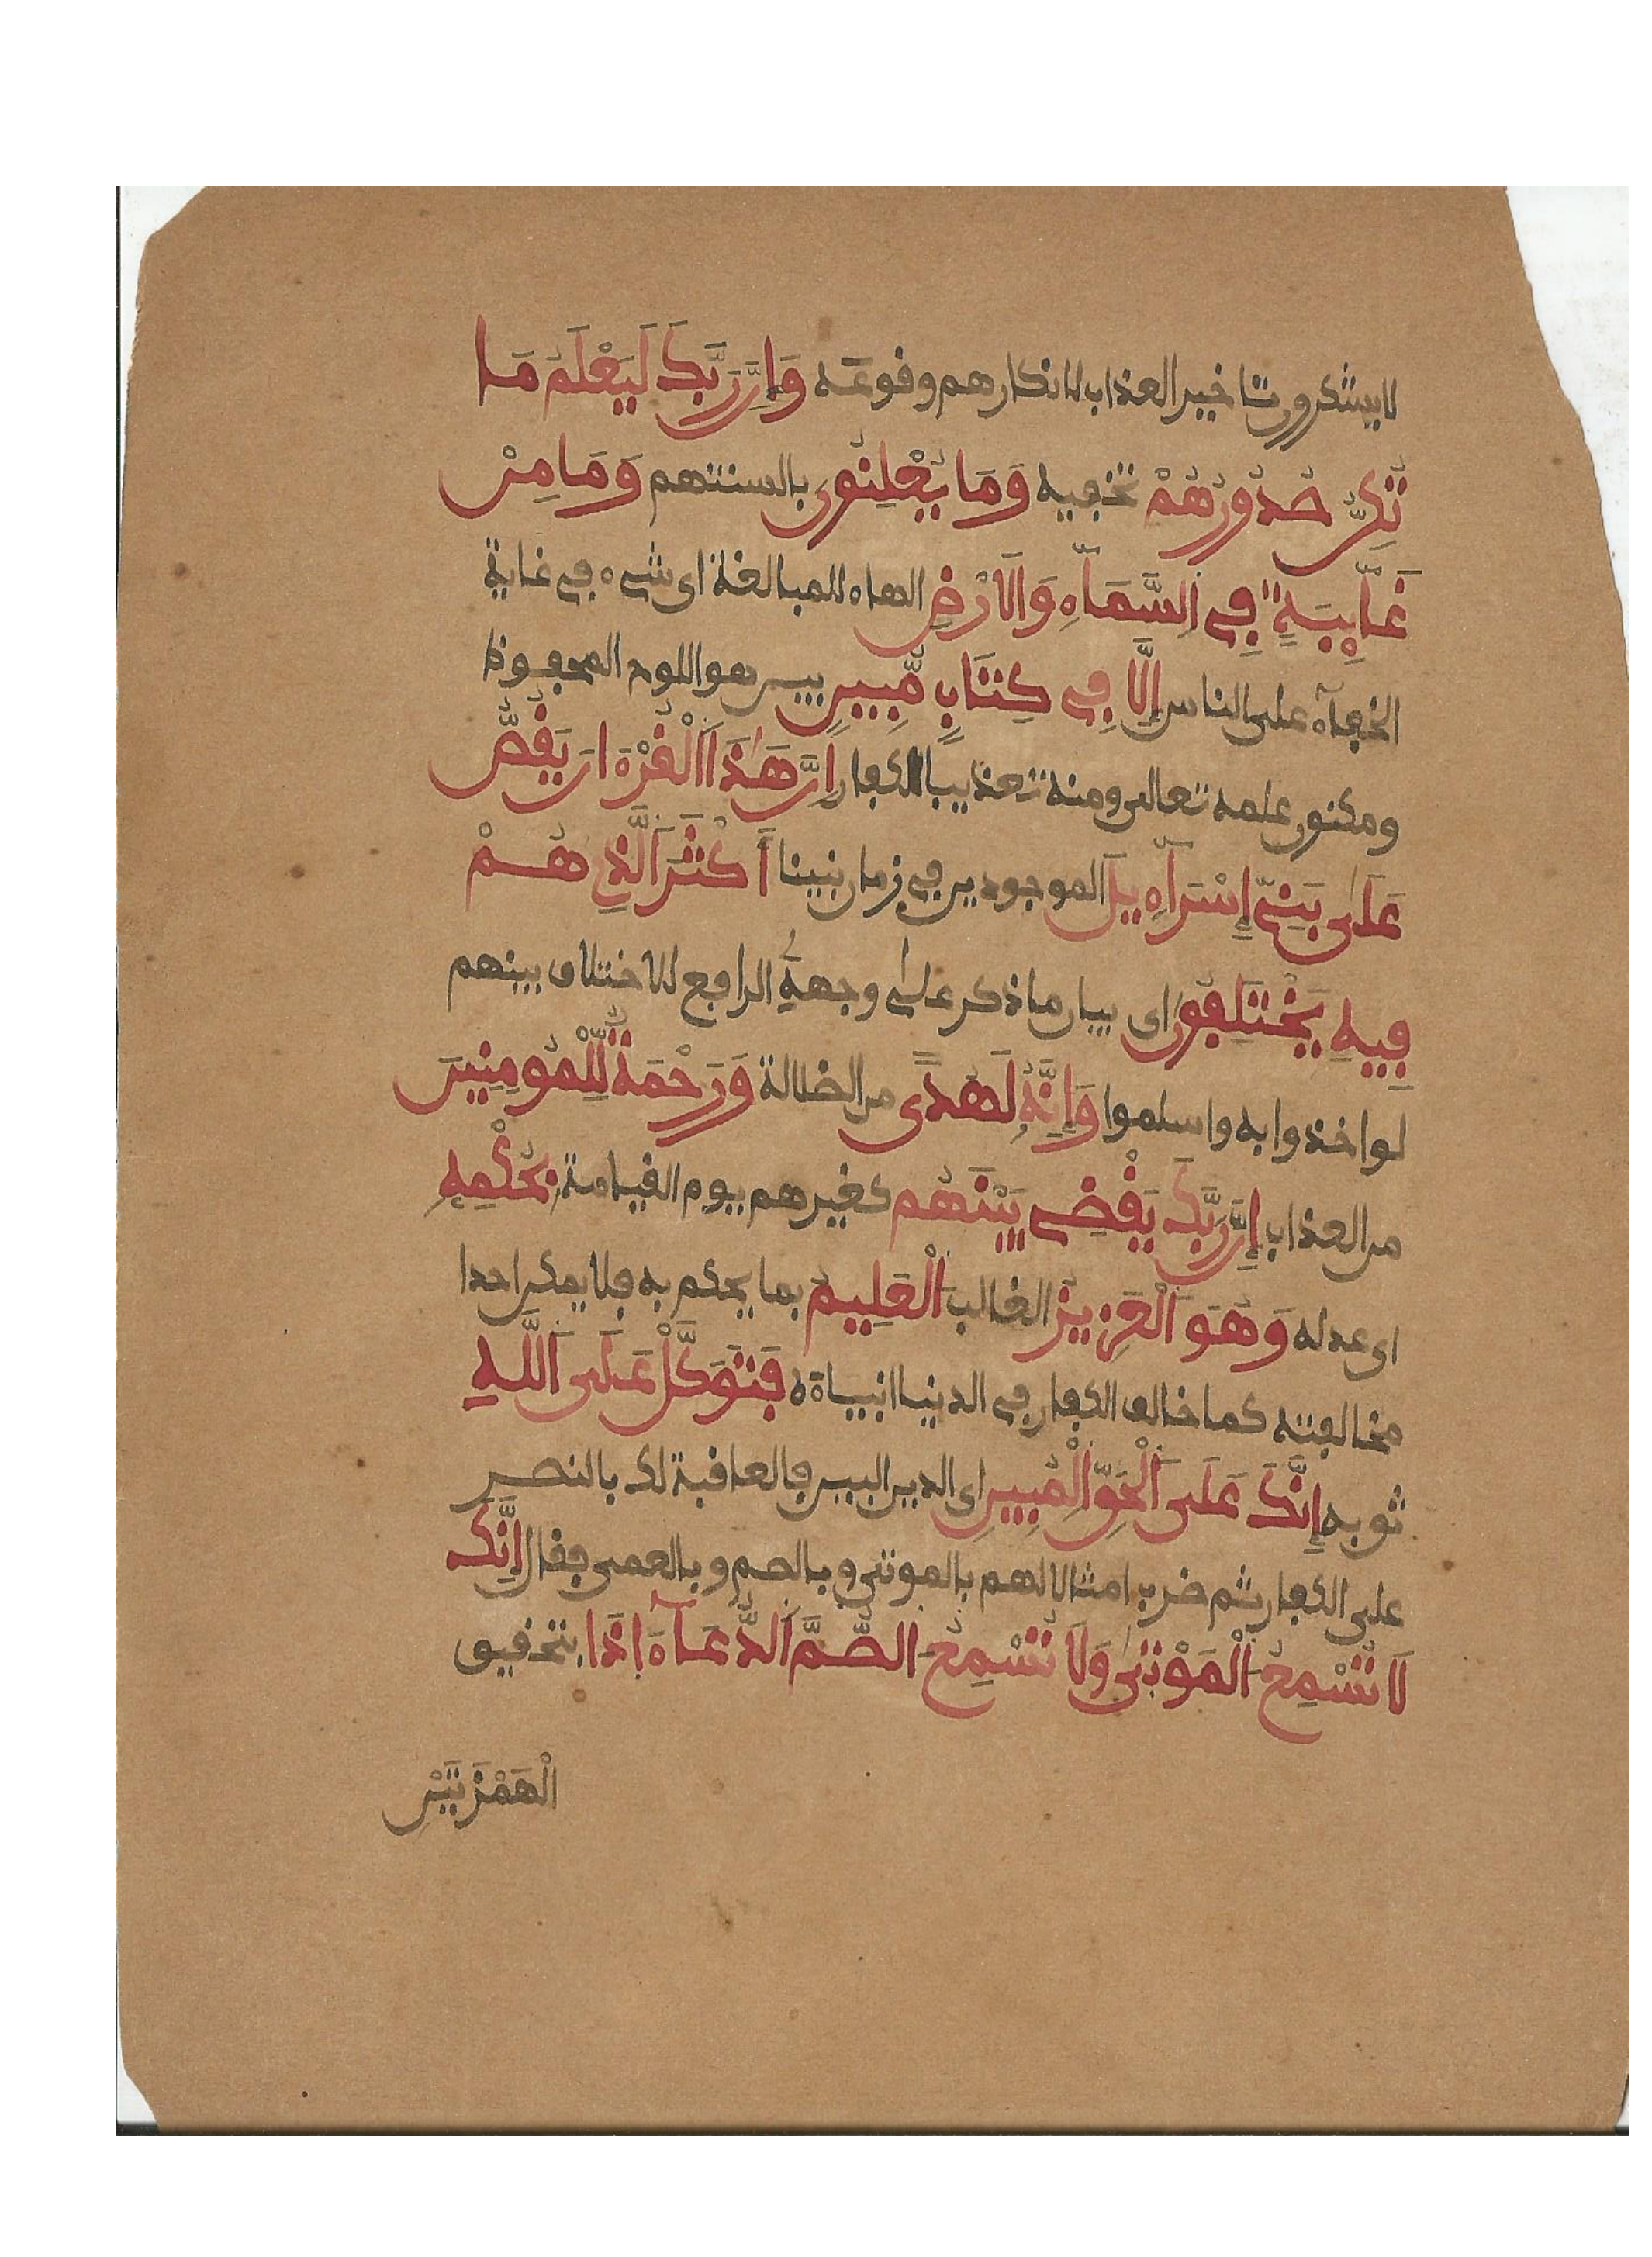 لا يشكرون تاخير العذاب لانكارهم وقوعه وَإِنَّ رَبَّكَ لَيَعْلَمُ مَا
تُكِنُّ صُدُورُهُمْ تخفيه وَمَا يُعْلِنُونَ بالسنتهم وَمَا مِنْ
غَآئِبَةٍ فِي السَّمَآءِ وَالَارْضِ الهاء للمبالغة اى شىء في غاية
الخفآء على الناس إِلَّا فِي كِتَابٍ مُّبِينٍ بين هو اللوح المحفوظ
ومكنون علمه تعالى ومنه تعذيب الكفار إِنَّ هَٰذَا اَلْقُرْءَانَ يَقُصُّ
عَلَىٰ بَنِىٓ إِسْرَآءِيلَ الموجودين في زمان نبينا أَكْثَرَ اَلَّذِے هُمْ
فِيهِ يَخْتَلِفُونَ اى بيان ما ذكر على وجهه الرافع للاختلاف بينهم
لو اخذوا به واسلموا وَإِنَّهُ لَهُدىً من الضلالة وَرَحْمَةٌ لِّلْمُومِنِينَ
من العذاب إِنَّ رَبَّكَ يَقْضِے بَيْنَهُم كغيرهم يوم القيامة بِحُكْمِهِ
اى عدله وَهُوَ اَلْعَزِيزُ الغالب اَلْعَلِيمُ بما يحكم به فلا يمكن احدا
مخالفته كما خالف الكفار في الدنيا انبياءه فَتَوَكَّلْ عَلَى اَللَّهِ
ثق به إِنَّكَ عَلَى اَلْحَقِّ الْمُبِينِ اى الدين البين فالعاقبة لك بالنصر
على الكفار ثم ضرب امثالا لهم بالموتى وبالصم وبالعمى فقال إِنَّكَ
لَا تُسْمِعُ اَلْمَوْتَىٰ وَلَا تُسْمِعُ الصُّمَّ اَلدُّعَآءَ اِذَا بتحقيق
الْهَمْزَتَيْنِ